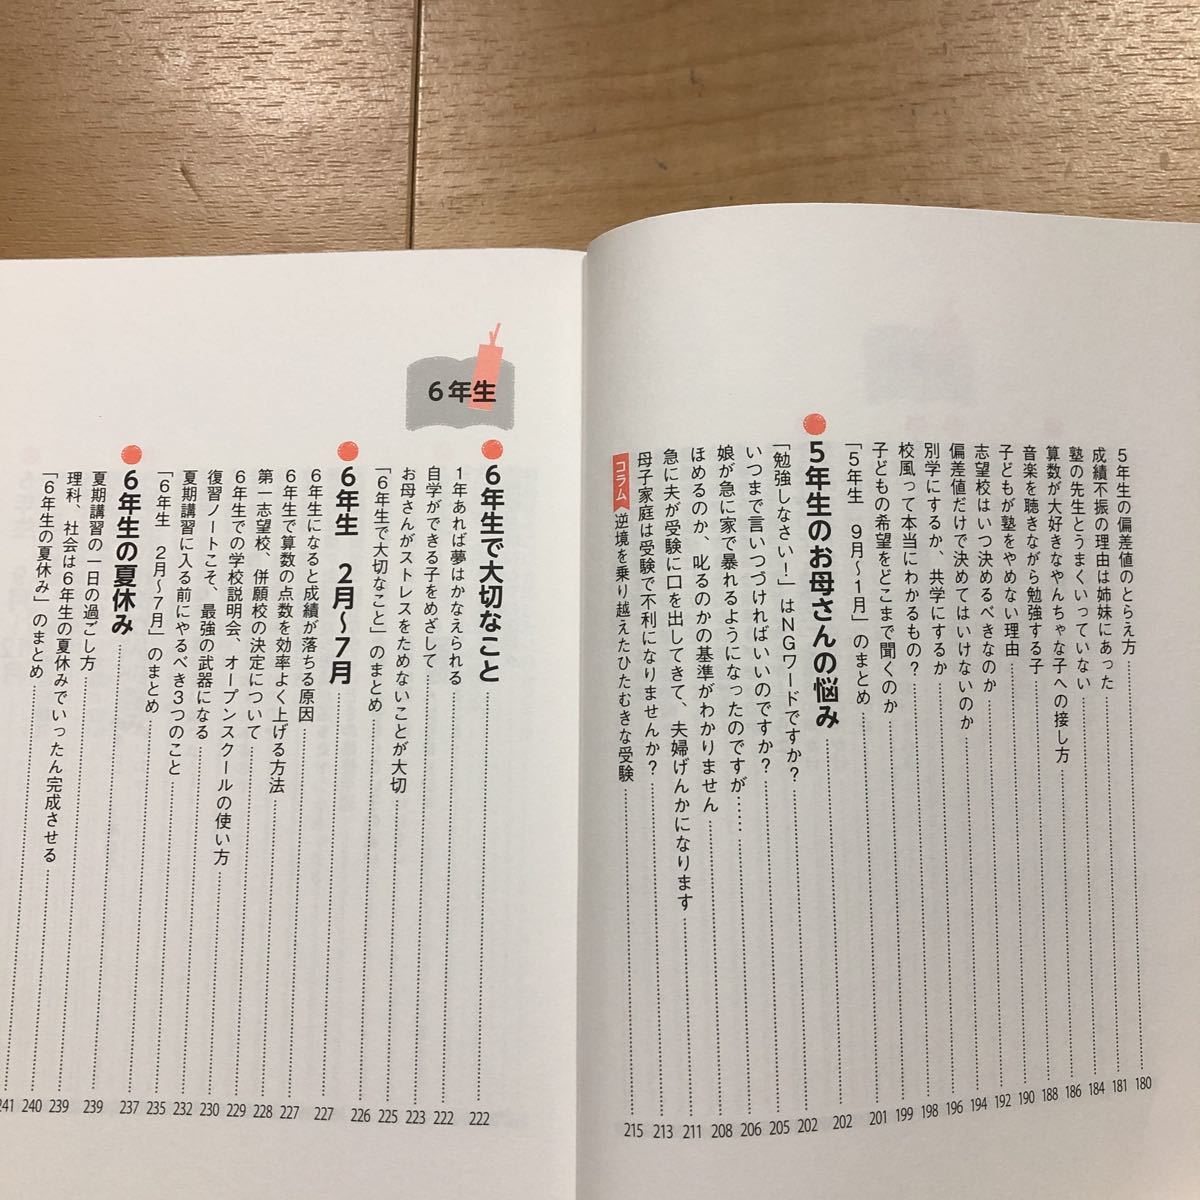 5年生の偏差値のとらえ方 180
成績不振の理由は姉妹にあった 181
塾の先生とうまくいっていない 184
算数が大好きなやんちゃな子への接し方 186
音楽を聴きながら勉強する子 188
子どもが塾をやめない理由 190
志望校はいつ決めるべきなのか 192
偏差値だけで決めてはいけないのか 194
別学にするか、共学にするか 196
校風って本当にわかるもの? 198
子どもの希望をどこまで聞くのか 199
「5年生 9月〜1月」のまとめ 201
5年生のお母さんの悩み 202
「勉強しなさい!」はNGワードですか? 202
いつまで言いつづければいいのですか? 205
娘が急に家で暴れるようになったのですが…… 206
ほめるのか、叱るのかの基準がわかりません 208
急に夫が受験に口を出してきて、夫婦げんかになります 211
母子家庭は受験で不利になりませんか? 213
コラム 逆境を乗り越えたひたむきな受験 215
6年生
6年生で大切なこと 222
1年あれば夢はかなえられる 222
自学ができる子をめざして 223
お母さんがストレスをためないことが大切 225
「6年生で大切なこと」のまとめ 226
6年生 2月〜7月 227
6年生になると成績が落ちる原因 227
6年生で算数の点数を効率よく上げる方法 228
第一志望校、併願校の決定について 229
6年生での学校説明会、オープンスクールの使い方 230
復習ノートこそ、最強の武器になる 232
夏期講習に入る前にやるべき3つのこと 235
「6年生 2月〜7月」のまとめ 237
6年生の夏休み 239
夏期講習の一日の過ごし方 239
理科、社会は6年生の夏休みでいったん完成させる 240
「6年生の夏休み」のまとめ 241